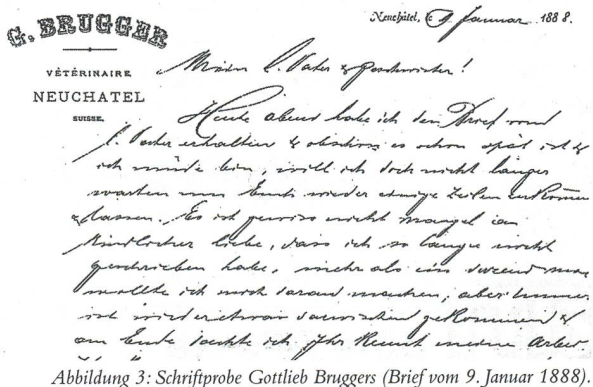 G. BRUGGER
VÉTÉRINAIRE
NEUCHATEL
SUISSE.
Neuchâtel, le 9 Januar 1888.
Mein l. Vater & Geschwister!
Heute abend habe ich den Brief von
l. Vater erhalten & obschon es schon spät ist &
ich müde bin, will ich doch nicht länger
warten um Euch wieder einige Zeilen zukommen
z lassen. Es ist gewiss nicht mangel an
kindlicher liebe, dass ich so lange nicht
geschrieben habe, mehr als ein mal
wollte ich mich daran machen, aber immer
ist wieder etwas dazwischen gekommen &
am Ende dachte ich, Ihr kennt meine Arbeit
Abbildung 3: Schriftprobe Gottlieb Bruggers (Brief vom 9. Januar 1888).